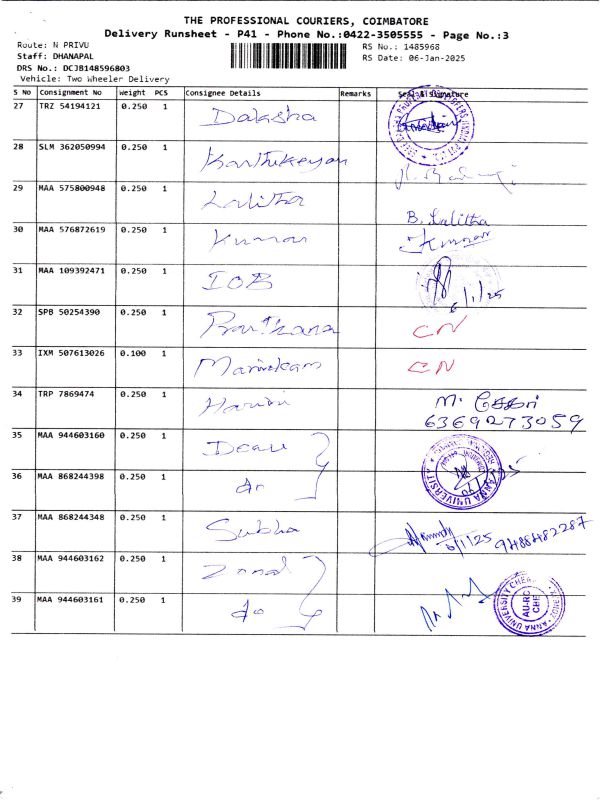 THE PROFESSIONAL COURIERS, COIMBATORE
Delivery Runsheet - P41 - Phone No.:0422-3505555 - Page No.:3
Route: N PRIVU
RS No.: 1485968
Staff: DHANAPAL
RS Date: 06-Jan-2025
DRS No.: DCJB148596803
Vehicle: Two Wheeler Delivery
S No Consignment No Weight PCS Consignee Details Remarks Seal & Signature
27 TRZ 54194121 0.250 1 Daksha
28 SLM 362050994 0.250 1 Karthikeyan
29 MAA 575800948 0.250 1 Lalitha B. Lalitha
30 MAA 576872619 0.250 1 Kumar Kumar
31 MAA 109392471 0.250 1 IOB 6/1/25
32 SPB 50254390 0.250 1 CN
33 IXM 507613026 0.100 1 CN
34 TRP 7869474 0.250 1 Harini M.
6369273059
35 MAA 944603160 0.250 1 Dean ANNA UNIVERSITY
36 MAA 868244398 0.250 1 do
37 MAA 868244348 0.250 1 Subha 6/1/25 9488482287
38 MAA 944603162 0.250 1
39 MAA 944603161 0.250 1 do ANNA UNIVERSITY